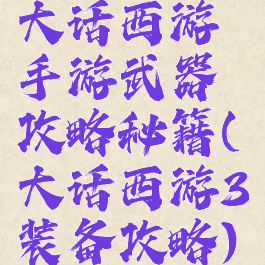 大话西游
手游武器
攻略秘籍(
大话西游3
装备攻略)